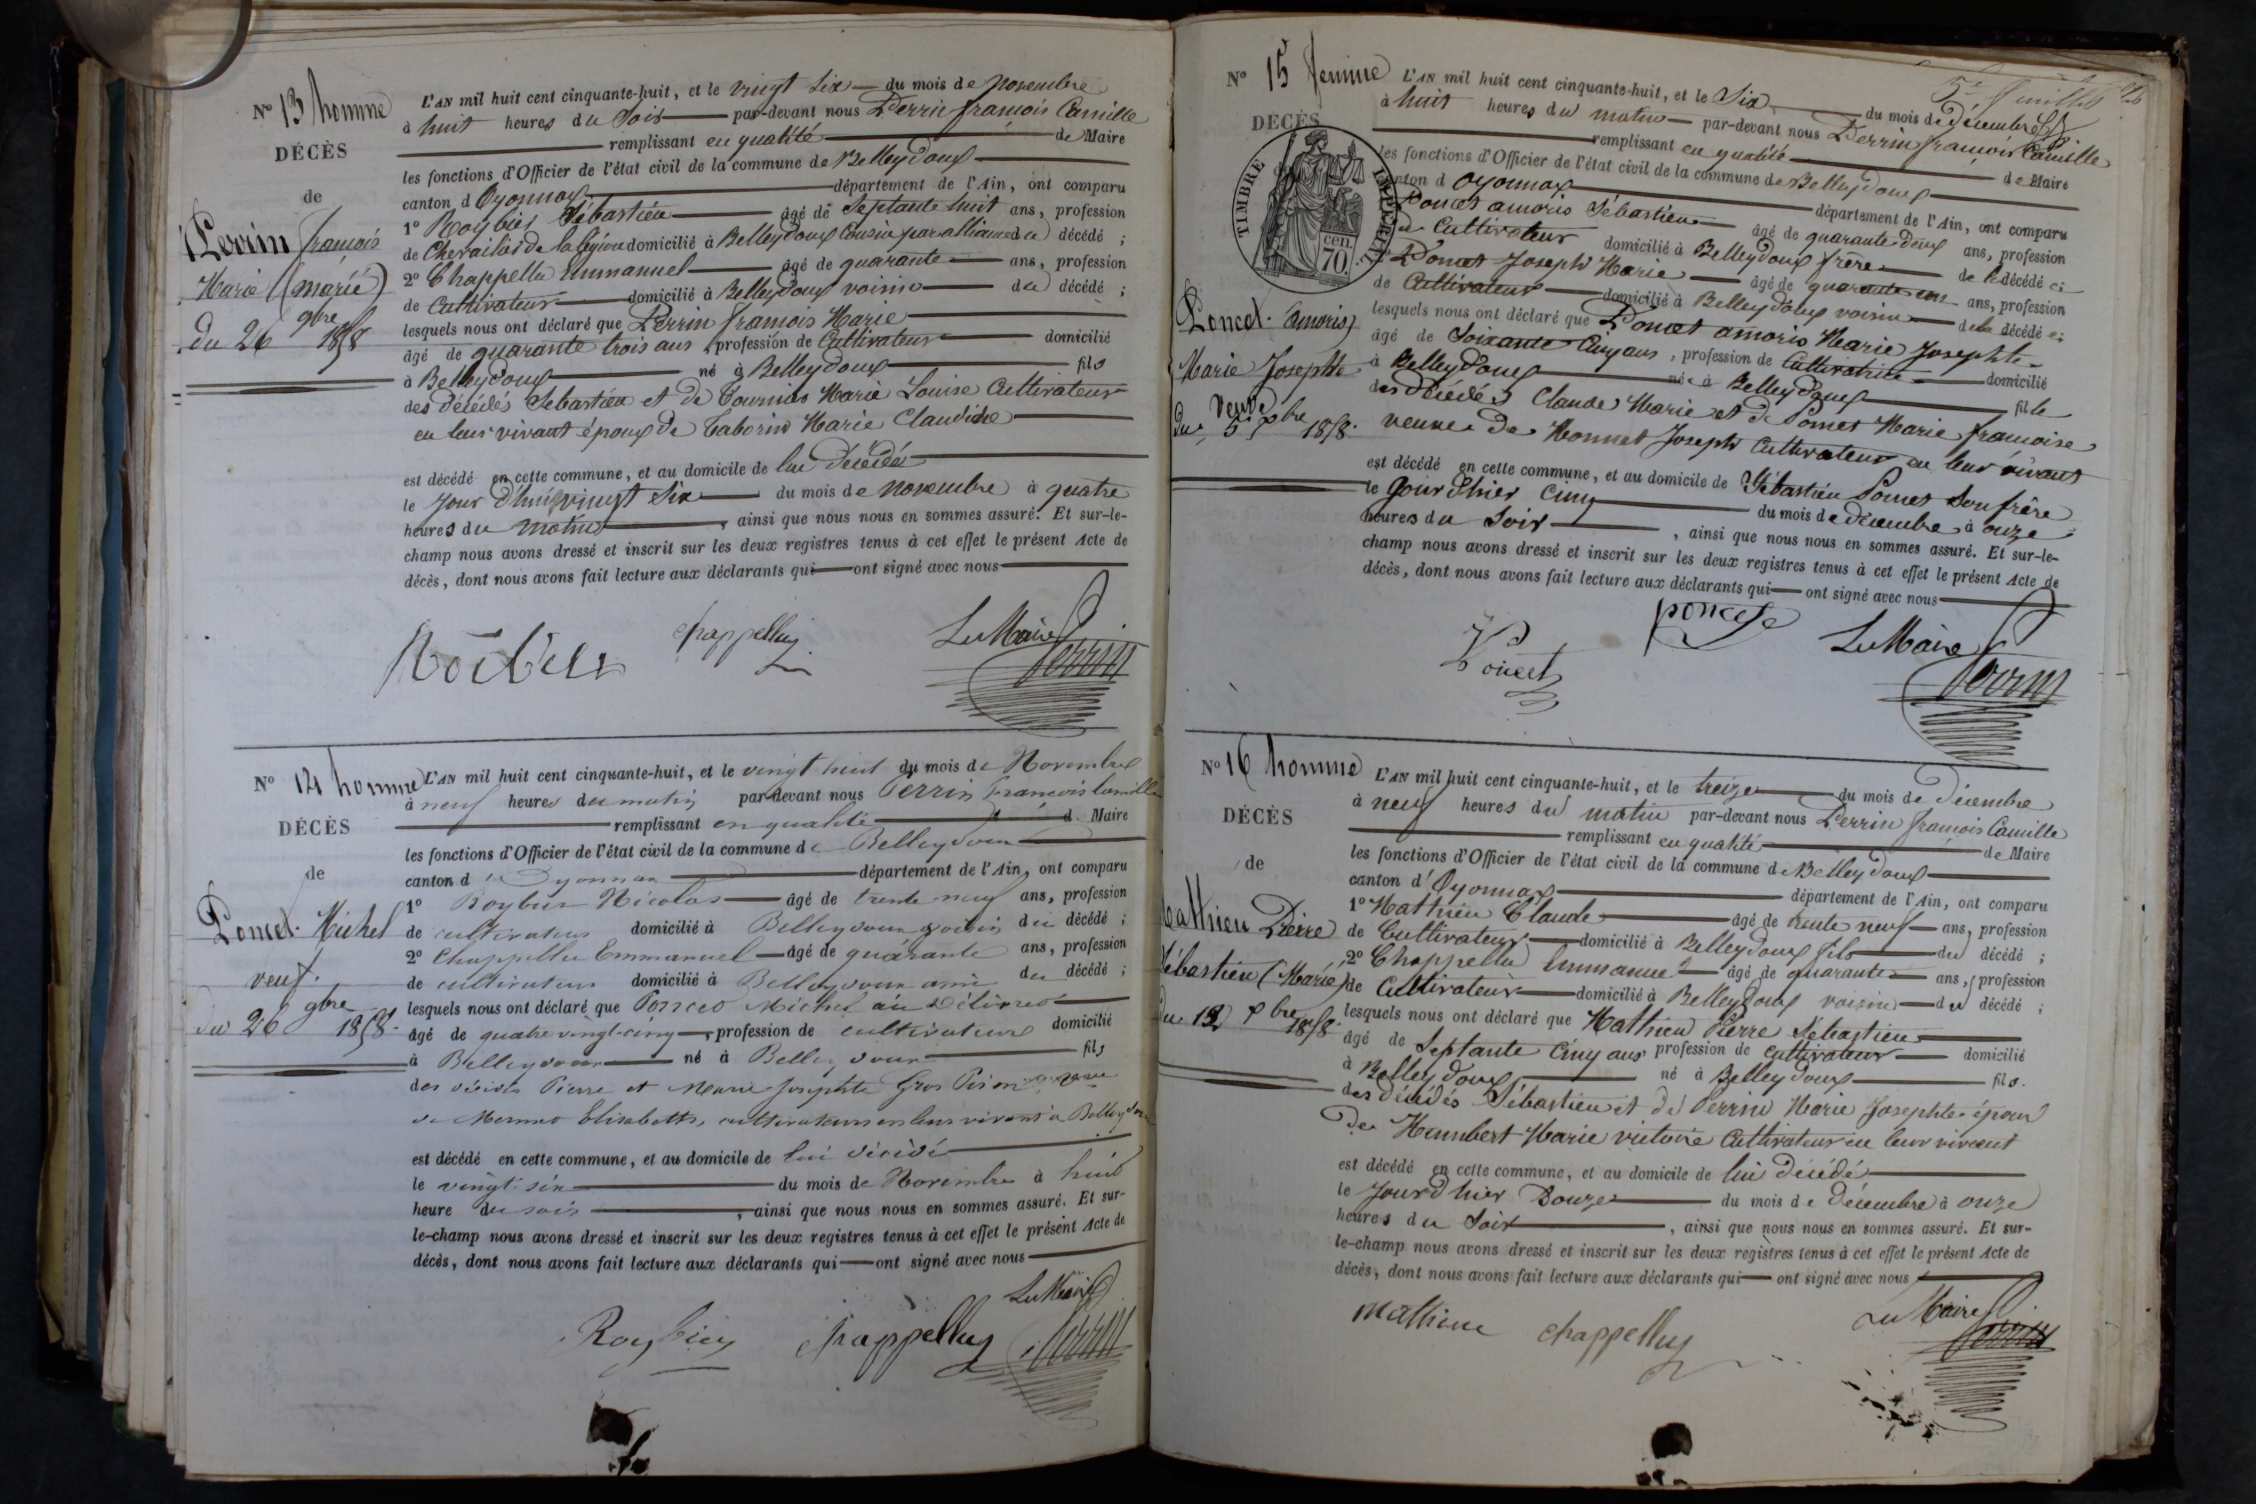 N° 13 homme
DÉCÈS
de
Perrin françois
Marie (marié)
du 26 9bre 1858
L'AN mil huit cent cinquante-huit, et le vingt six du mois de novembre
à huit heures du Soir par-devant nous Perrin françois Camille
remplissant en qualité de Maire
les fonctions d'Officier de l'état civil de la commune de Belleydoux
canton d Oyonnax département de l'Ain, ont comparu
1° Roybier Sébastien âgé de Septante huit ans, profession
de Chevailier de la légion domicilié à Belleydoux Cousin par alliance du décédé ;
2° Chappellu Emmanuel âgé de quarante ans, profession
de Cultivateur domicilié à Belleydoux voisin du décédé ;
lesquels nous ont déclaré que Perrin françois Marie
âgé de quarante trois ans, profession de Cultivateur domicilié
à Belleydoux né à Belleydoux fils
des décédés Sébastien et de Tournier Marie Louise Cultivateur
en leur vivant époux de Taborin Marie Claudine
est décédé en cette commune, et au domicile de lui décédé
le Jour d'hui vingt Six du mois de novembre à quatre
heures du matin, ainsi que nous nous en sommes assuré. Et sur-le-
champ nous avons dressé et inscrit sur les deux registres tenus à cet effet le présent Acte de
décès, dont nous avons fait lecture aux déclarants qui ont signé avec nous
chappelluy Le Maire
Perrin
N° 14 homme
DÉCÈS
de
Poncet Michel
veuf.
du 26 9bre 1858.
L'AN mil huit cent cinquante-huit, et le vingt huit du mois de Novembre
à neuf heures du matin par-devant nous Perrin françois Camille
remplissant en qualité d Maire
les fonctions d'Officier de l'état civil de la commune de Belleydoux
canton d Oyonnax département de l'Ain, ont comparu
1° Roybier Nicolas âgé de trente neuf ans, profession
de cultivateur domicilié à Belleydoux voisin du décédé ;
2° Chappellu Emmanuel âgé de quarante ans, profession
de cultivateur domicilié à Belleydoux ami du décédé ;
lesquels nous ont déclaré que Poncet Michel
âgé de quatre vingt-cinq, profession de cultivateur domicilié
à Belleydoux né à Belleydoux fils
des décédés Pierre et Marie Josephte
de Mermet Elisabeth, cultivateurs en leur vivant à Belleydoux
est décédé en cette commune, et au domicile de lui décédé
le vingt-six du mois de Novembre à huit
heure du soir, ainsi que nous nous en sommes assuré. Et sur-
le-champ nous avons dressé et inscrit sur les deux registres tenus à cet effet le présent Acte de
décès, dont nous avons fait lecture aux déclarants qui ont signé avec nous
Le Maire
Roybier chappelluy Perrin
5e feuillet
N° 15 femme
DÉCÈS
TIMBRE IMPÉRIAL
70 cen.
Poncet (amoris)
Marie Josephte
Veuve
du 5 Xbre 1858.
L'AN mil huit cent cinquante-huit, et le Six du mois de décembre
à huit heures du matin par-devant nous Perrin françois Camille
remplissant en qualité de Maire
les fonctions d'Officier de l'état civil de la commune de Belleydoux
canton d Oyonnax département de l'Ain, ont comparu
Poncet amoris Sébastien âgé de quarante deux ans, profession
de Cultivateur domicilié à Belleydoux frère de la décédé
Poncet Joseph Marie âgé de quarante ans, profession
de Cultivateur domicilié à Belleydoux voisin de la décédé
lesquels nous ont déclaré que Poncet amoris Marie Josephte
âgé de Soixante Cinq ans, profession de Cultivatrice domicilié
à Belleydoux née à Belleydoux fille
des décédés Claude Marie et de Poncet Marie françoise
veuve de Monnet Joseph Cultivateur en leur vivant
est décédé en cette commune, et au domicile de Sébastien Poncet Son frère
le Jour d'hier Cinq du mois de décembre à onze
heures du Soir, ainsi que nous nous en sommes assuré. Et sur-le-
champ nous avons dressé et inscrit sur les deux registres tenus à cet effet le présent Acte de
décès, dont nous avons fait lecture aux déclarants qui ont signé avec nous
poncet
Poncet Le Maire
Perrin
N° 16 homme
DÉCÈS
de
Mathieu Pierre
Sébastien (Marié)
du 12 Xbre 1858.
L'AN mil huit cent cinquante-huit, et le treize du mois de décembre
à neuf heures du matin par-devant nous Perrin françois Camille
remplissant en qualité de Maire
les fonctions d'Officier de l'état civil de la commune de Belleydoux
canton d'Oyonnax département de l'Ain, ont comparu
1° Mathieu Claude âgé de trente neuf ans, profession
de Cultivateur domicilié à Belleydoux fils du décédé ;
2° Chappellu Emmanuel âgé de quarante ans, profession
de Cultivateur domicilié à Belleydoux voisin du décédé ;
lesquels nous ont déclaré que Mathieu Pierre Sébastien
âgé de Septante Cinq ans profession de Cultivateur domicilié
à Belleydoux né à Belleydoux fils.
des décédés Sébastien et de Perrin Marie Josephte époux
de Humbert Marie victoire Cultivateur en leur vivant
est décédé en cette commune, et au domicile de lui décédé
le Jour d'hier Douze du mois de décembre à onze
heures du Soir, ainsi que nous nous en sommes assuré. Et sur-
le-champ nous avons dressé et inscrit sur les deux registres tenus à cet effet le présent Acte de
décès, dont nous avons fait lecture aux déclarants qui ont signé avec nous
Mathieu chappelluy Le Maire
Perrin